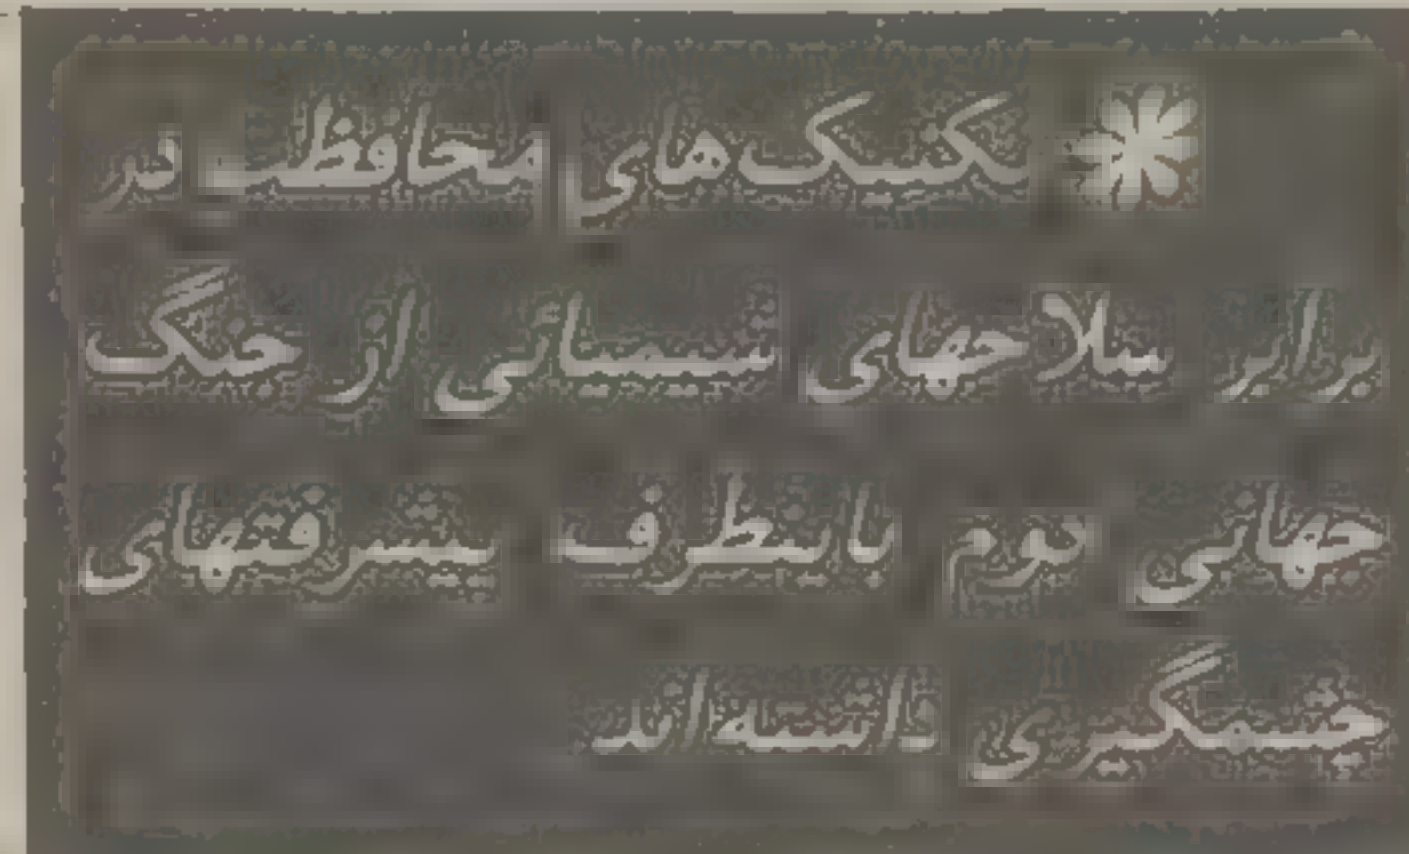 تکنیک‌های محافظت در
برابر سلاحهای شیمیائی از جنگ
جهانی دوم باینطرف پیشرفتهای
چشمگیری داشته‌اند